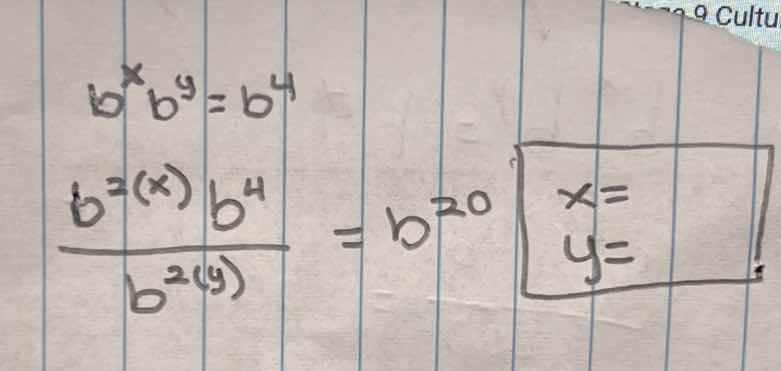 9 Cultu
b^x b^y = b^4
b^2(x) b^4 / b^2(y) = b^20
x=
y=